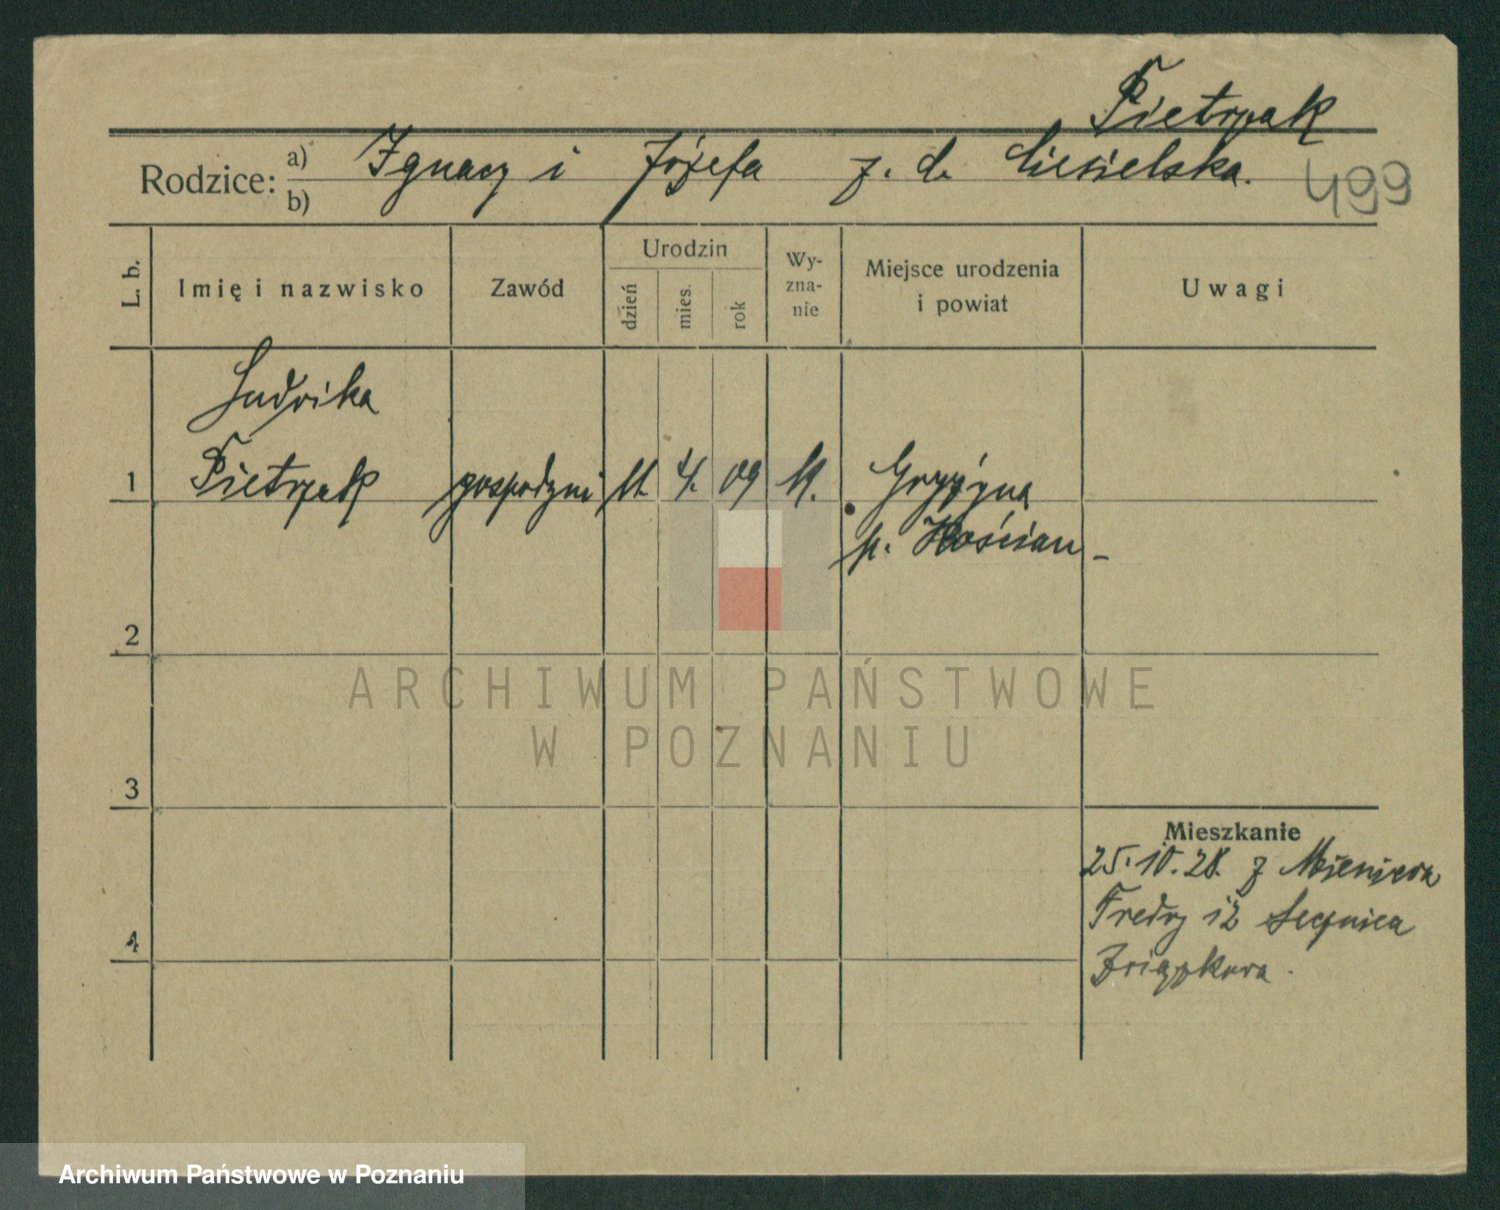 Pietrzak
Rodzice: a) Ignacy i Józefa z. d. Ciesielska.
b)
499
L. b.
Imię i nazwisko
Zawód
Urodzin
dzień
mies.
rok
Wy-
zna-
nie
Miejsce urodzenia
i powiat
Uwagi
Ludwika
1 Pietrzak gospodyni 11. 4. 09 kt. Gryżyna
p. Kościan
2
ARCHIWUM PAŃSTWOWE
W POZNANIU
3
Mieszkanie
25.10.28. z
Fredry 12
4
Archiwum Państwowe w Poznaniu